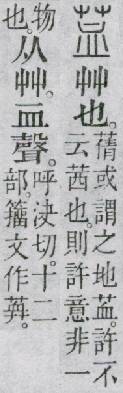 艸也。
蒨或謂之地血。許不
云茜也。則許意非一
物
也。
从艸。血聲。
呼決切。十二
部。籒文作